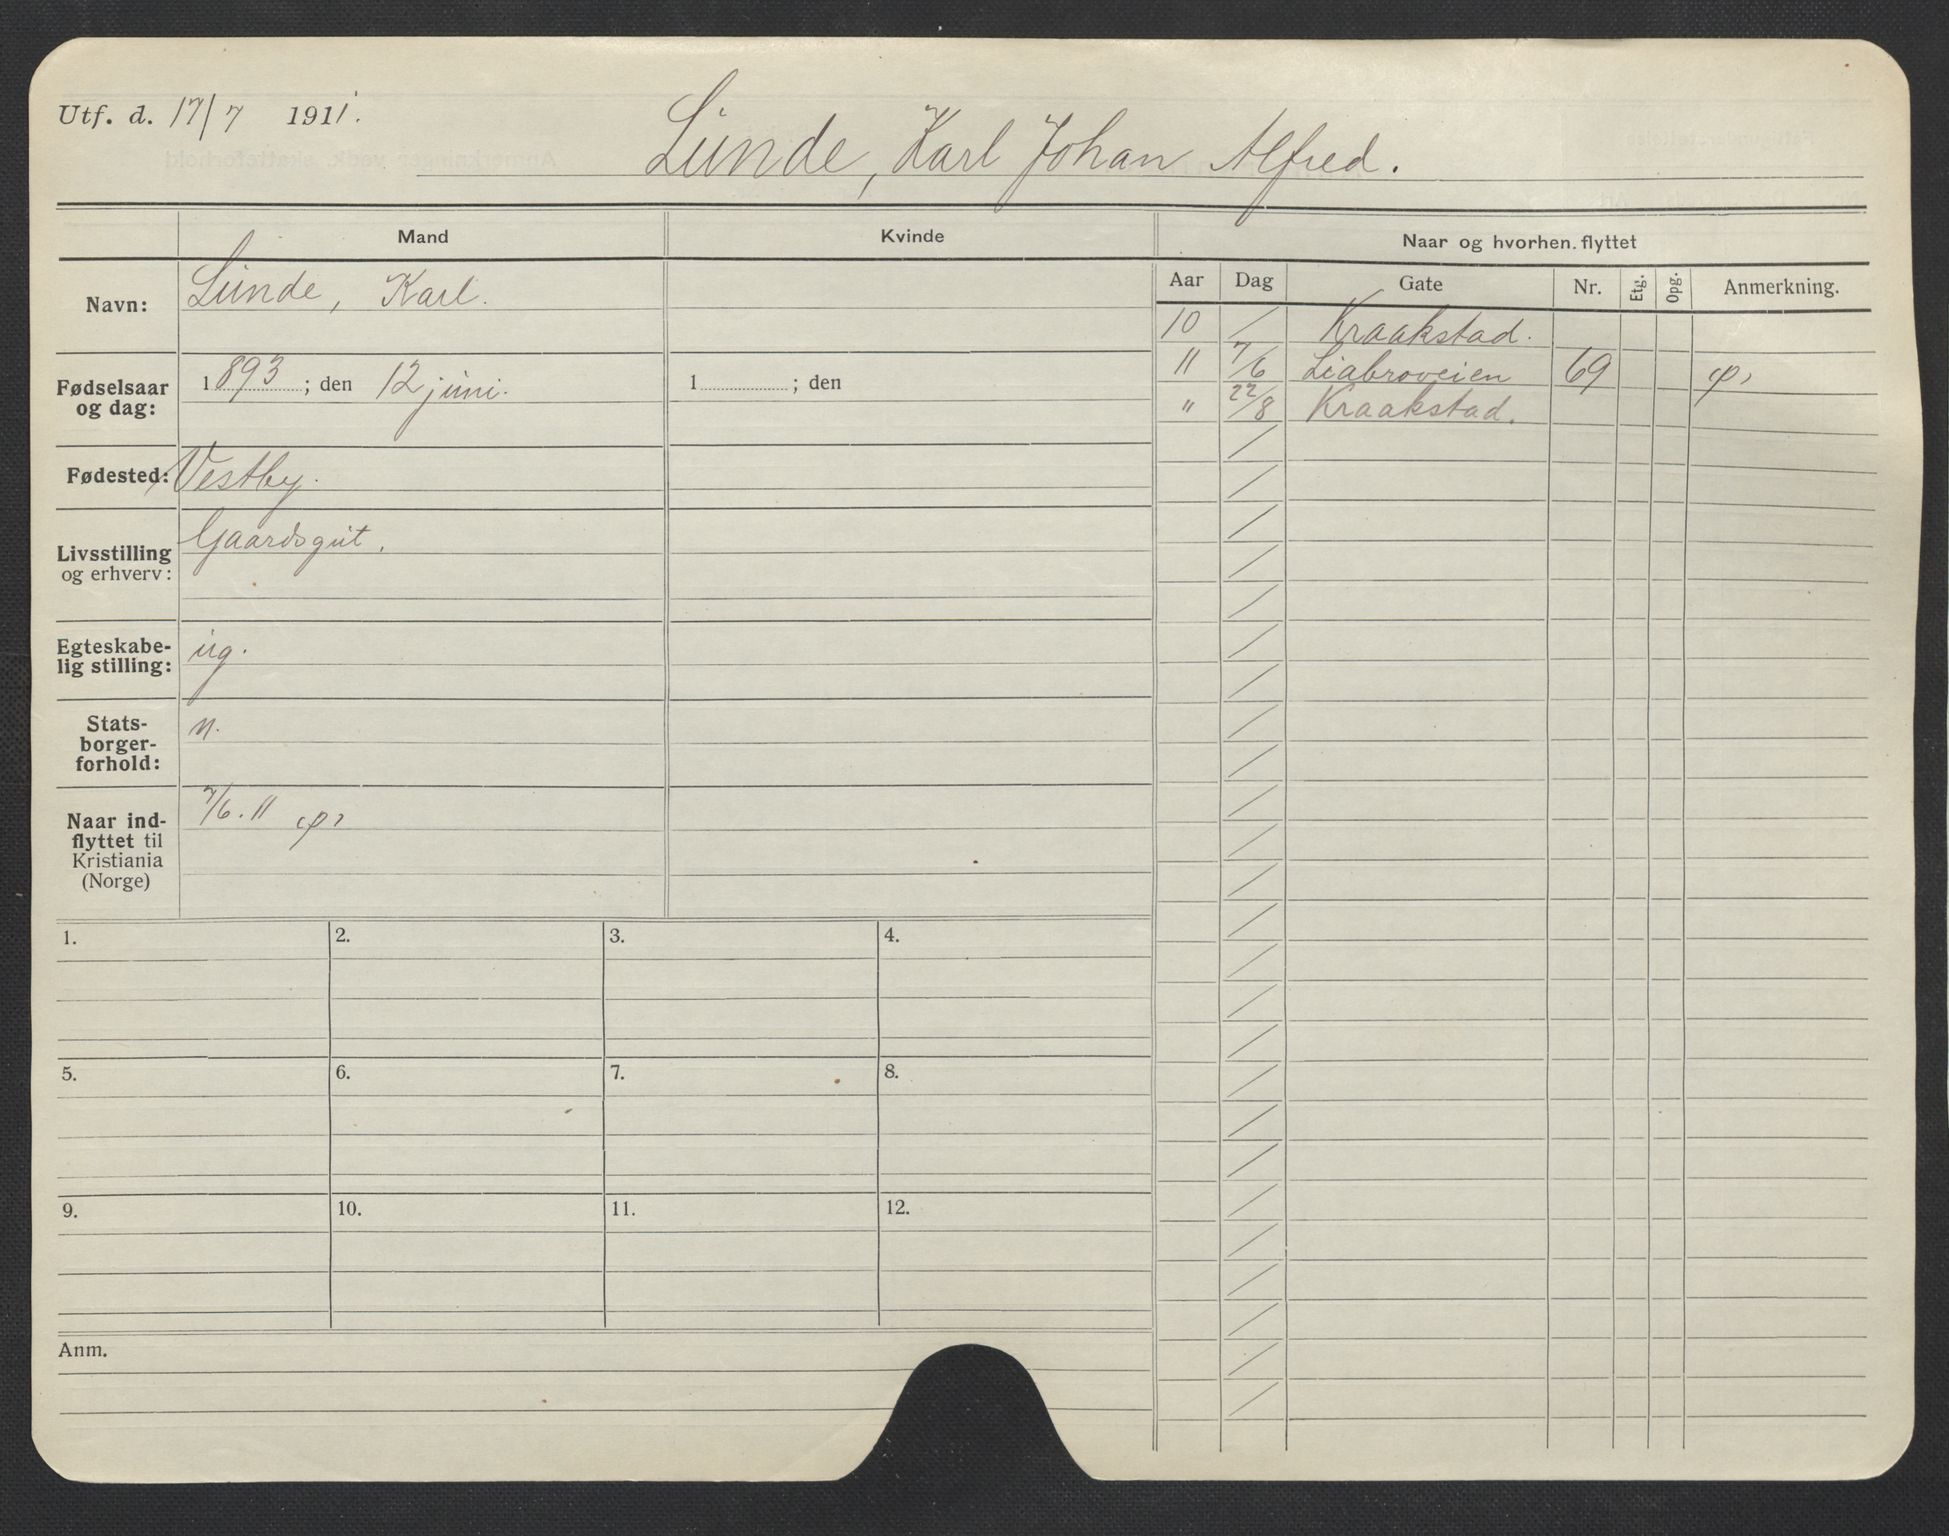 Utf. d. 17/7 1911.
Lunde, Karl Johan Alfred.
Mand
Kvinde
Navn: Lunde, Karl.
Fødselsaar og dag: 1893; den 12 juni.
1 ; den
Fødested: Vestby.
Livsstilling og erhverv: Gaardsgut.
Egteskabe-
lig stilling: ug.
Stats-
borger-
forhold: n.
Naar ind-
flyttet til
Kristiania
(Norge) 7/6. 11
1. 2. 3. 4.
5. 6. 7. 8.
9. 10. 11. 12.
Anm.
Naar og hvorhen flyttet
Aar Dag Gate Nr. Etg. Opg. Anmerkning.
10 / Kraakstad.
11 7/6 Liabroveien 69
" 22/8 Kraakstad.